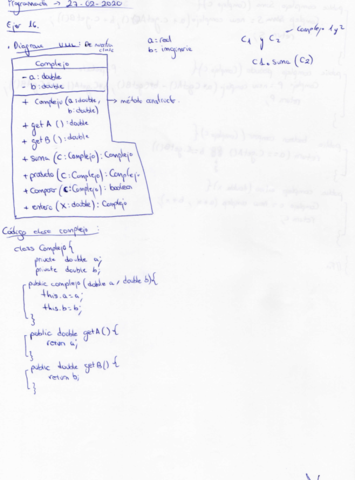 Programación - 27-02-2020
Ejer 16.
· Diagrama UML: De nuestra clase
a: real
b: imaginaria
C1 y C2 - complejo 1 y 2
C1.suma (C2)
Complejo
- a: double
- b: double
+ Complejo (a: double, b: double) → método constructor.
+ getA (): double
+ getB (): double
+ suma (C: Complejo): Complejo
+ producto (C: Complejo): Complejo
+ Comparar (C: Complejo): boolean
+ entero (X: double): Complejo
Código clase complejo:
class Complejo {
private double a;
private double b;
public complejo (double a, double b) {
this.a = a;
this.b = b;
}
public double getA () {
return a;
}
public double getB () {
return b;
}